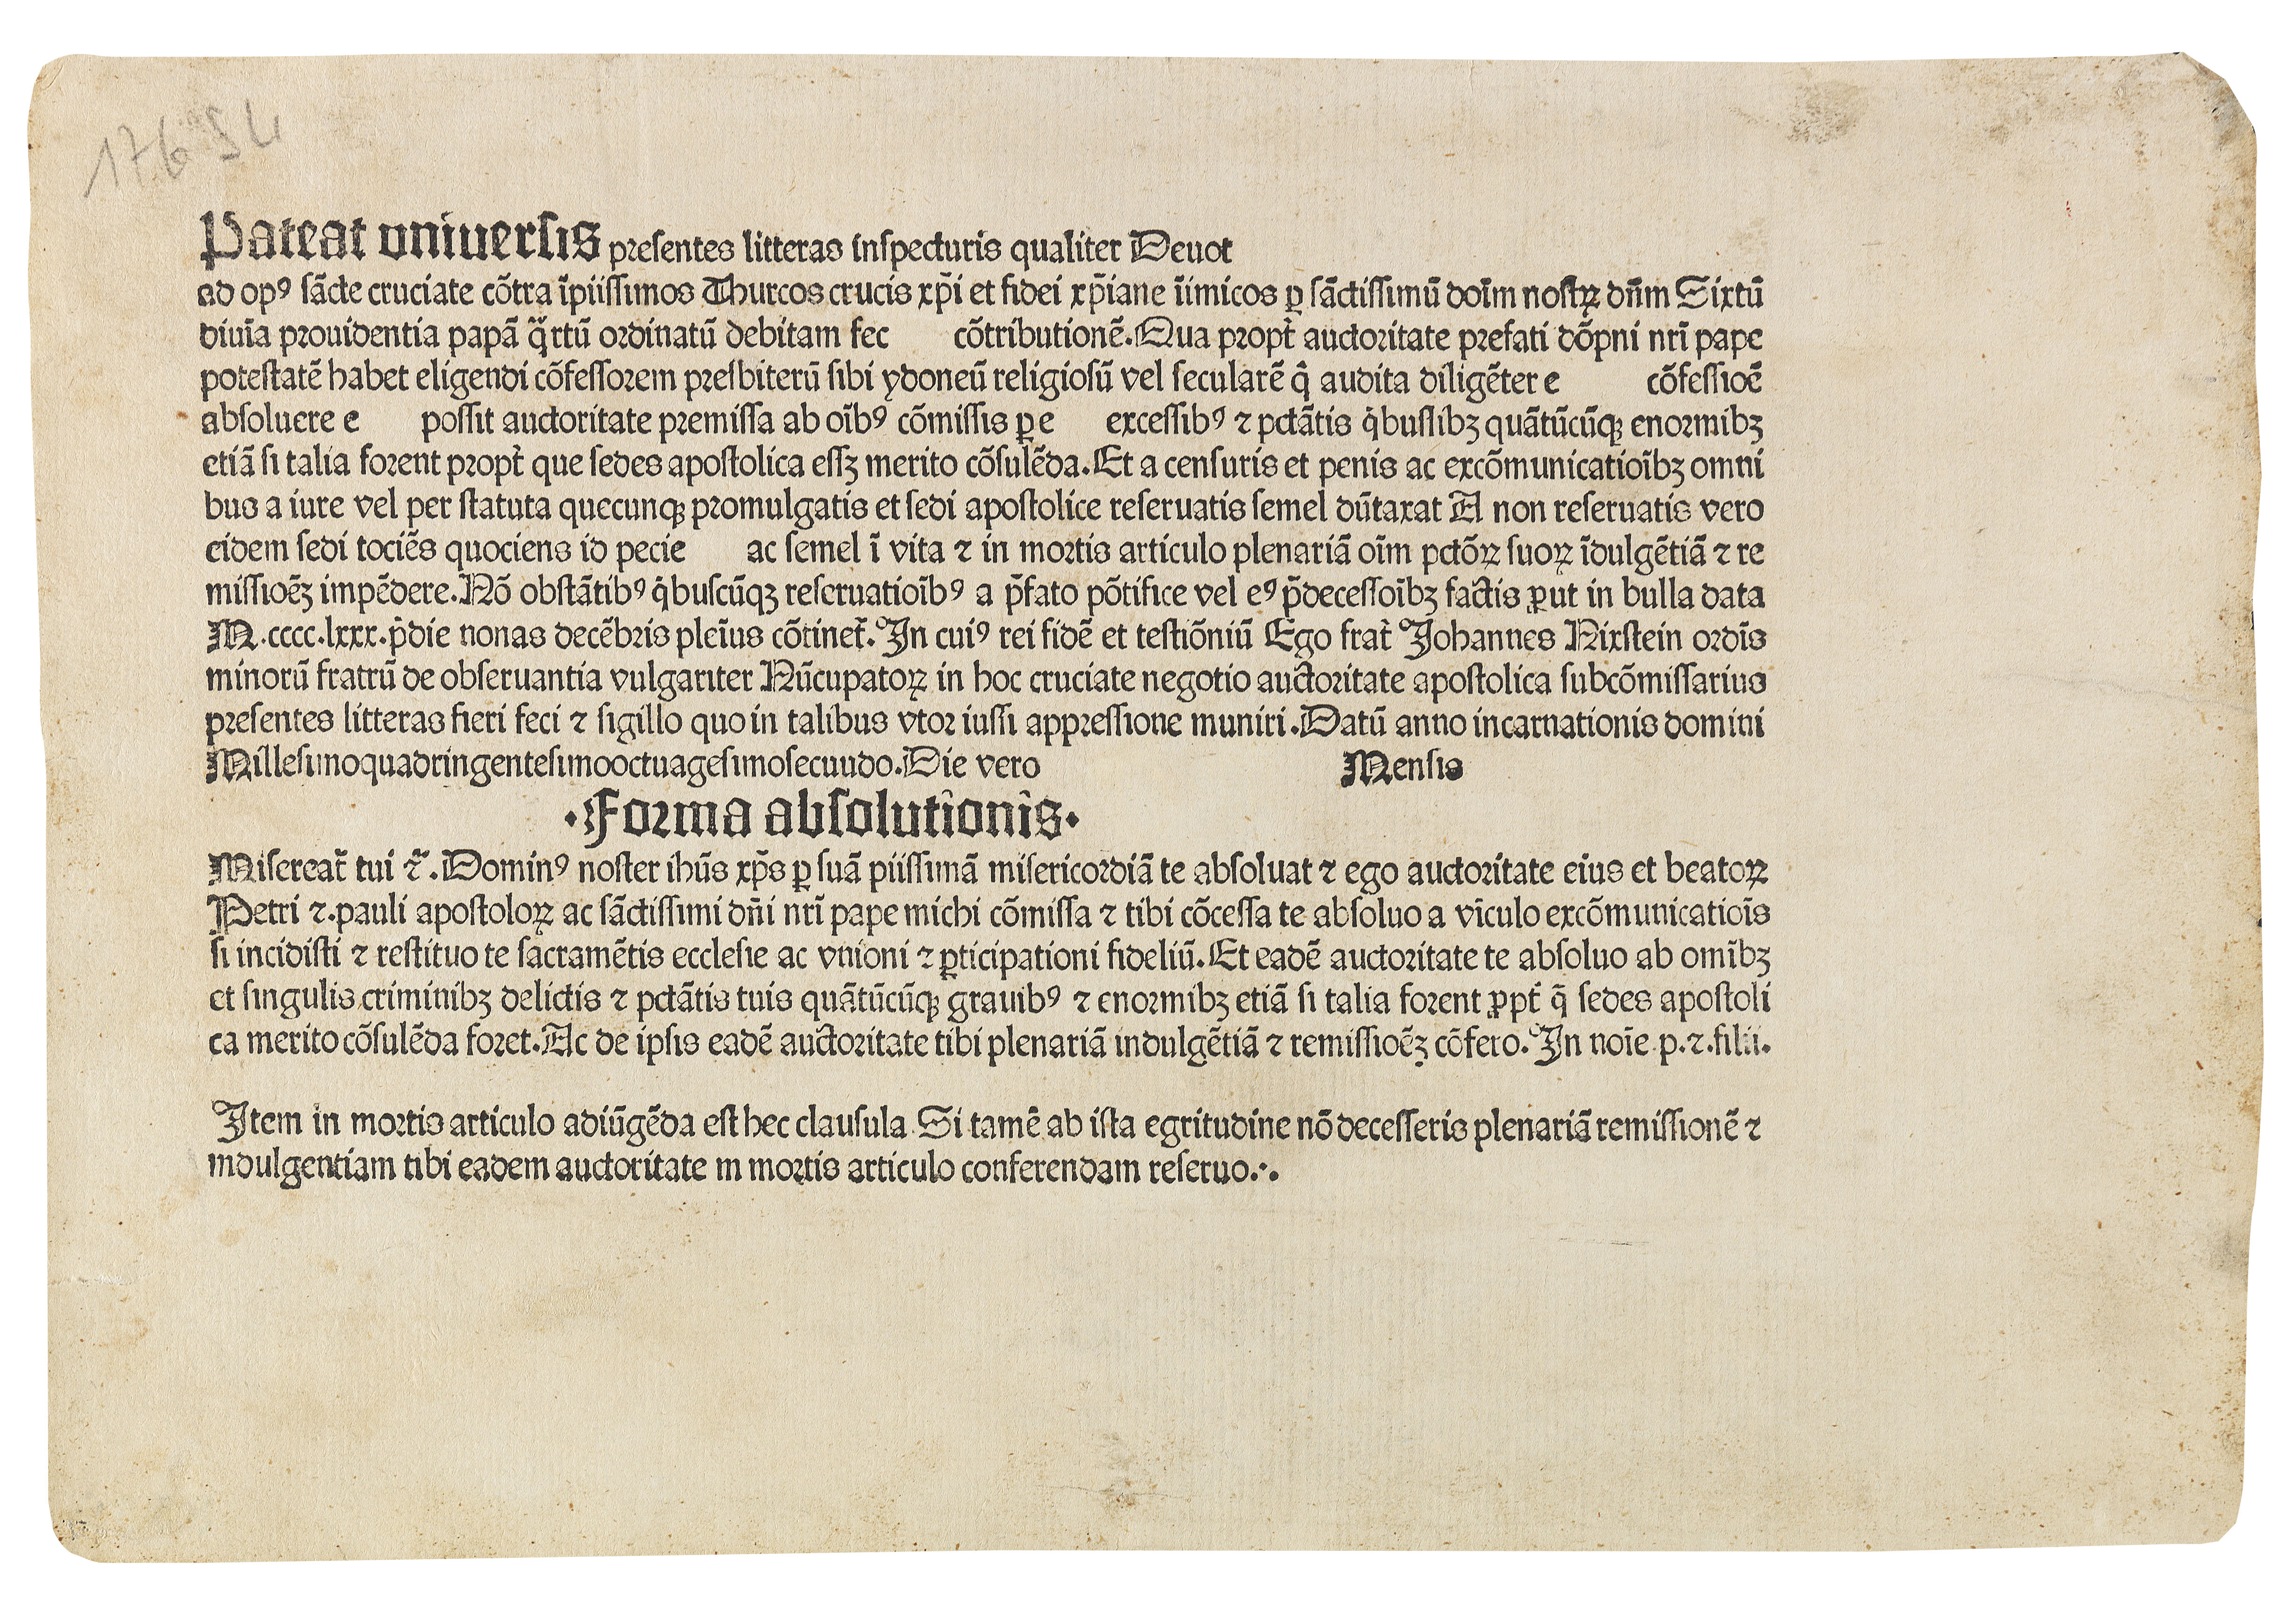 17694
Pateat vniuersis presentes litteras inspecturis qualiter Deuot
ad opꝰ sãcte cruciate cõtra ĩpiissimos Thurcos crucis xp̃i et fidei xp̃iane ĩimicos ꝑ sãctissimũ doĩm nostꝝ dñm Sixtũ
diuĩa prouidentia papã q̃rtũ ordinatũ debitam fec cõtributionẽ. Qua propt̃ auctoritate prefati dõpni nrĩ pape
potestatẽ habet eligendi cõfessorem presbiterũ sibi ydoneũ religiosũ vel secularẽ q̇ audita diligẽter e cõfessioẽ
absoluere e possit auctoritate premissa ab oĩbꝰ cõmissis ꝑ e excessibꝰ ⁊ pctãtis q̇buslibꝫ quãtũcũqꝫ enormibꝫ
etiã si talia forent propt̃ que sedes apostolica essꝫ merito cõsulẽda. Et a censuris et penis ac excõmunicatioĩbꝫ omni
bus a iure vel per statuta quecunqꝫ promulgatis et sedi apostolice reseruatis semel dũtaxat A non reseruatis vero
eidem sedi tociẽs quociens id pecie ac semel ĩ vita ⁊ in mortis articulo plenariã oĩm pctõꝝ suoꝝ ĩdulgẽtiã ⁊ re
missioẽꝫ impẽdere. Nõ obstãtibꝰ q̇buscũqꝫ reseruatioĩbꝰ a p̃fato põtifice vel eꝰ p̃decessoĩbꝫ factis ꝓut in bulla data
M.cccc.lxxx. p̃die nonas decẽbris pleĩus cõtinet̃. In cuiꝰ rei fidẽ et testiõniũ Ego frat̃ Johannes Nixstein ordĩs
minorũ fratrũ de obseruantia vulgariter Nũcupatoꝝ in hoc cruciate negotio auctoritate apostolica subcõmissarius
presentes litteras fieri feci ⁊ sigillo quo in talibus vtor iussi appressione muniri. Datũ anno incarnationis domini
Millesimoquadringentesimooctuagesimosecuudo. Die vero Mensis
·Forma absolutionis·
Misereat̃ tui ⁊̃. Dominꝰ noster ihũs xp̃s ꝑ suã piissimã misericordiã te absoluat ⁊ ego auctoritate eius et beatoꝝ
Petri ⁊. pauli apostoloꝝ ac sãctissimi dñi nrĩ pape michi cõmissa ⁊ tibi cõcessa te absoluo a vĩculo excõmunicatioĩs
si incidisti ⁊ restituo te sacramẽtis ecclesie ac vnioni ⁊ ꝑticipationi fideliũ. Et eadẽ auctoritate te absoluo ab omĩbꝫ
et singulis criminibꝫ delictis ⁊ pctãtis tuis quãtũcũqꝫ grauibꝰ ⁊ enormibꝫ etiã si talia forent ꝓpt̃ q̃ sedes apostoli
ca merito cõsulẽda foret. Ac de ipsis eadẽ auctoritate tibi plenariã indulgẽtiã ⁊ remissioẽꝫ cõfero. In noĩe p. ⁊. filii.
Item in mortis articulo adiũgẽda est hec clausula Si tamẽ ab ista egritudine nõ decesseris plenariã remissionẽ ⁊
indulgentiam tibi eadem auctoritate in mortis articulo conferendam reseruo.·.